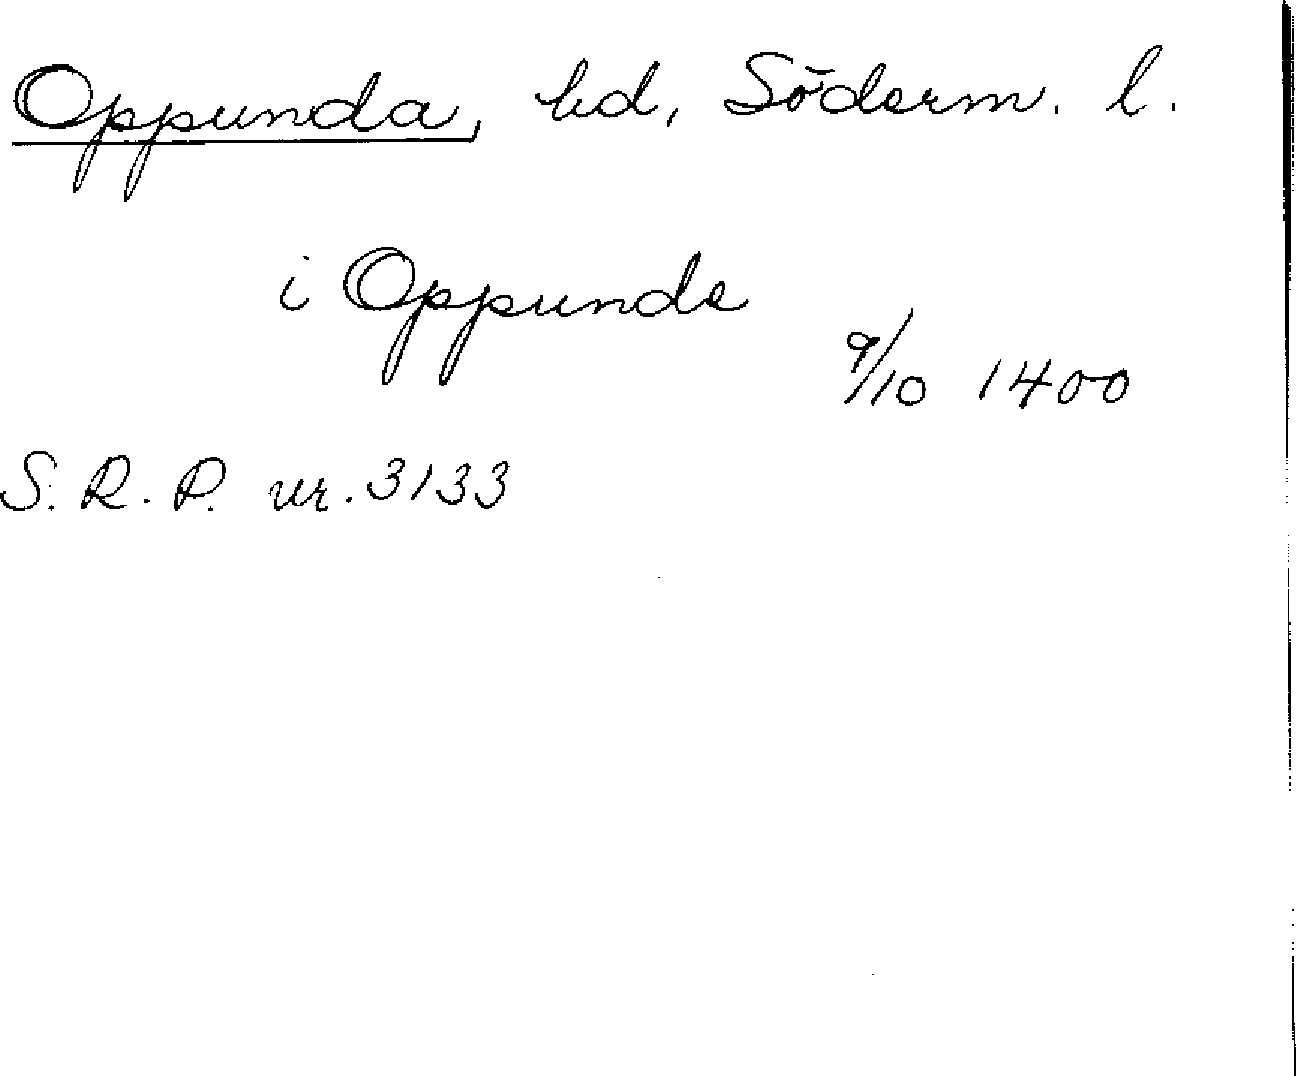 Oppunda, hd, Söderm. l.
i Oppunde
9/10 1400
S. R. P. nr. 3133